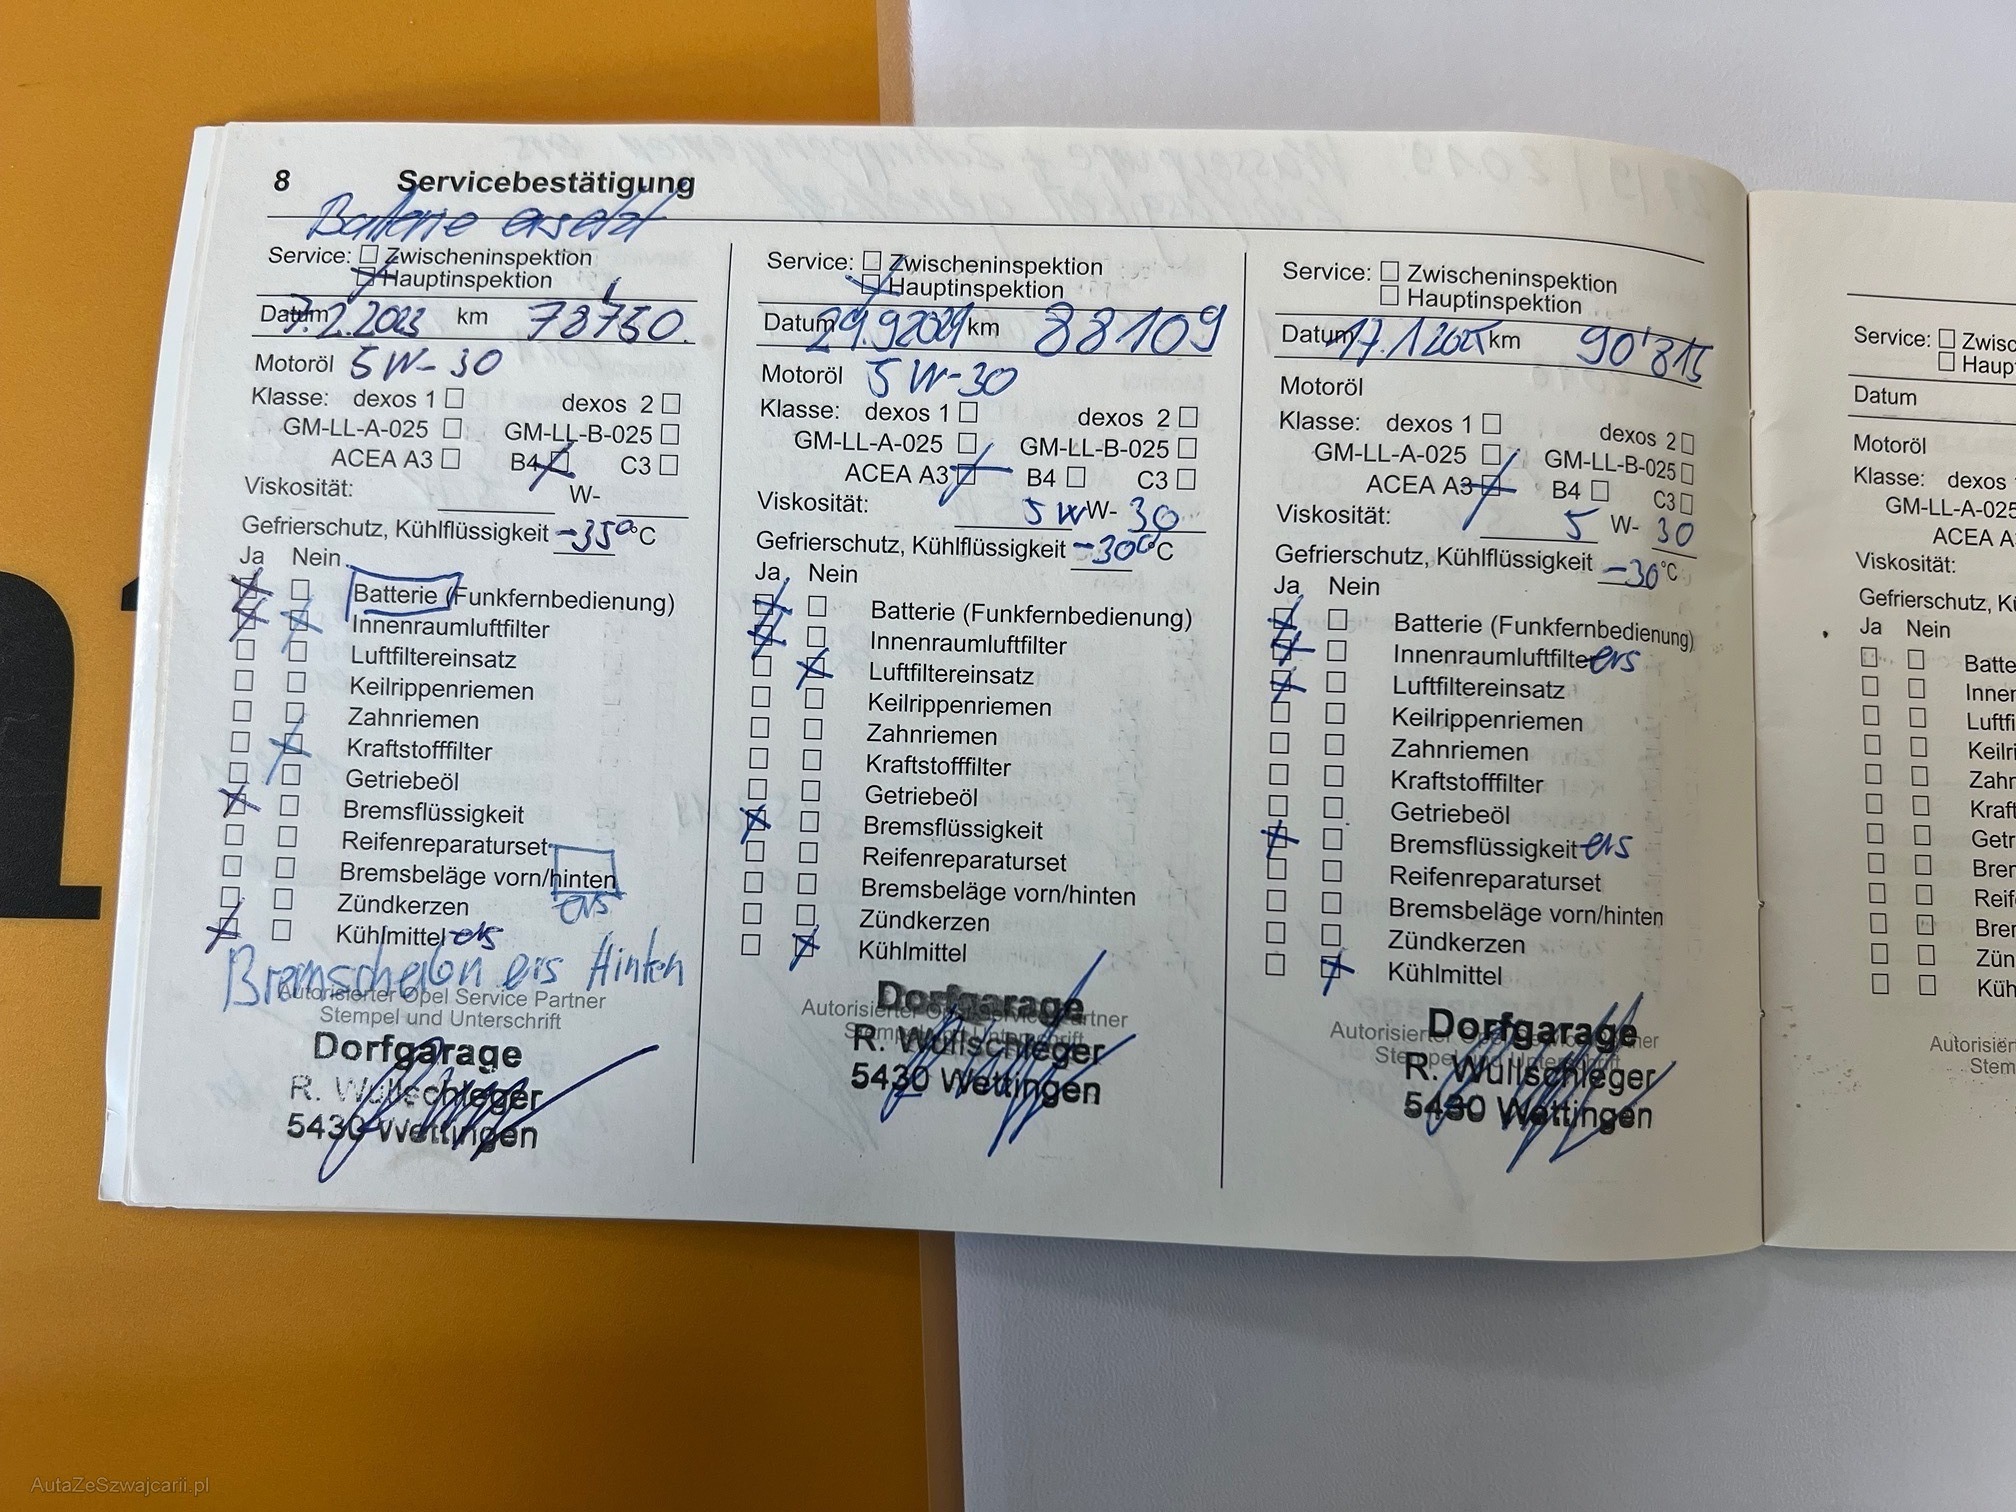 8 Servicebestätigung
Batterie ersetzt
Service: Zwischeninspektion
Hauptinspektion
Datum 7.2.2023 km 78'750.
Motoröl 5W-30
Klasse: dexos 1 dexos 2
GM-LL-A-025 GM-LL-B-025
ACEA A3 B4 C3
Viskosität: W-
Gefrierschutz, Kühlflüssigkeit -35° °C
Ja Nein
Batterie (Funkfernbedienung)
Innenraumluftfilter
Luftfiltereinsatz
Keilrippenriemen
Zahnriemen
Kraftstofffilter
Getriebeöl
Bremsflüssigkeit
Reifenreparaturset
Bremsbeläge vorn/hinten
ers
Zündkerzen
Kühlmittel ers
Bremscheiben ers Hinten
Autorisierter Opel Service Partner
Stempel und Unterschrift
Dorfgarage
R. Wullschleger
5430 Wettingen
Service: Zwischeninspektion
Hauptinspektion
Datum km 88109
Motoröl 5W-30
Klasse: dexos 1 dexos 2
GM-LL-A-025 GM-LL-B-025
ACEA A3 B4 C3
Viskosität: 5W W- 30
Gefrierschutz, Kühlflüssigkeit -30° °C
Ja Nein
Batterie (Funkfernbedienung)
Innenraumluftfilter
Luftfiltereinsatz
Keilrippenriemen
Zahnriemen
Kraftstofffilter
Getriebeöl
Bremsflüssigkeit
Reifenreparaturset
Bremsbeläge vorn/hinten
Zündkerzen
Kühlmittel
Autorisierter Opel Service Partner
Stempel und Unterschrift
Dorfgarage
R. Wullschleger
5430 Wettingen
Service: Zwischeninspektion
Hauptinspektion
Datum 17.1.2025 km 90'815
Motoröl
Klasse: dexos 1 dexos 2
GM-LL-A-025 GM-LL-B-025
ACEA A3 B4 C3
Viskosität: 5 W- 30
Gefrierschutz, Kühlflüssigkeit -30 °C
Ja Nein
Batterie (Funkfernbedienung)
Innenraumluftfilter ers
Luftfiltereinsatz
Keilrippenriemen
Zahnriemen
Kraftstofffilter
Getriebeöl
Bremsflüssigkeit ers
Reifenreparaturset
Bremsbeläge vorn/hinten
Zündkerzen
Kühlmittel
Autorisierter Opel Service Partner
Stempel und Unterschrift
Dorfgarage
R. Wullschleger
5430 Wettingen
Service: Zwisc
Haup
Datum
Motoröl
Klasse: dexos
GM-LL-A-025
ACEA A
Viskosität:
Gefrierschutz, Kü
Ja Nein
Batte
Inner
Luftfi
Keilri
Zahn
Kraft
Getr
Bren
Reif
Bren
Zün
Küh
Autorisiert
Stem
AutaZeSzwajcarii.pl